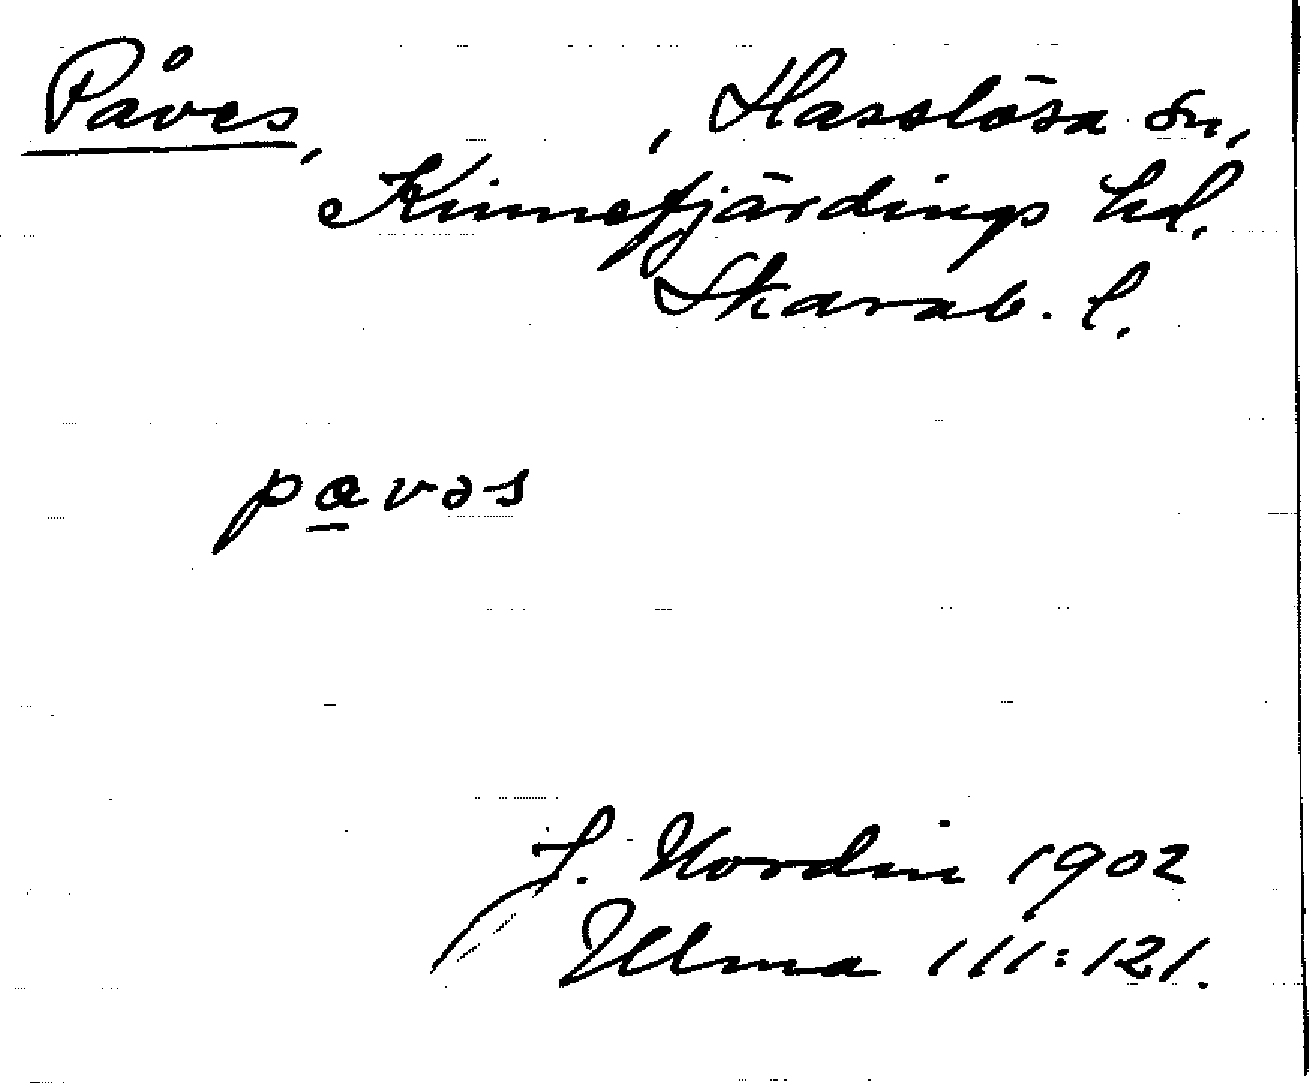 Påves, , Hasslösa sn,
Kinnefjärdings hd.
Skarab. l.
pavəs
J. Nordin 1902
Ulma 111:121.